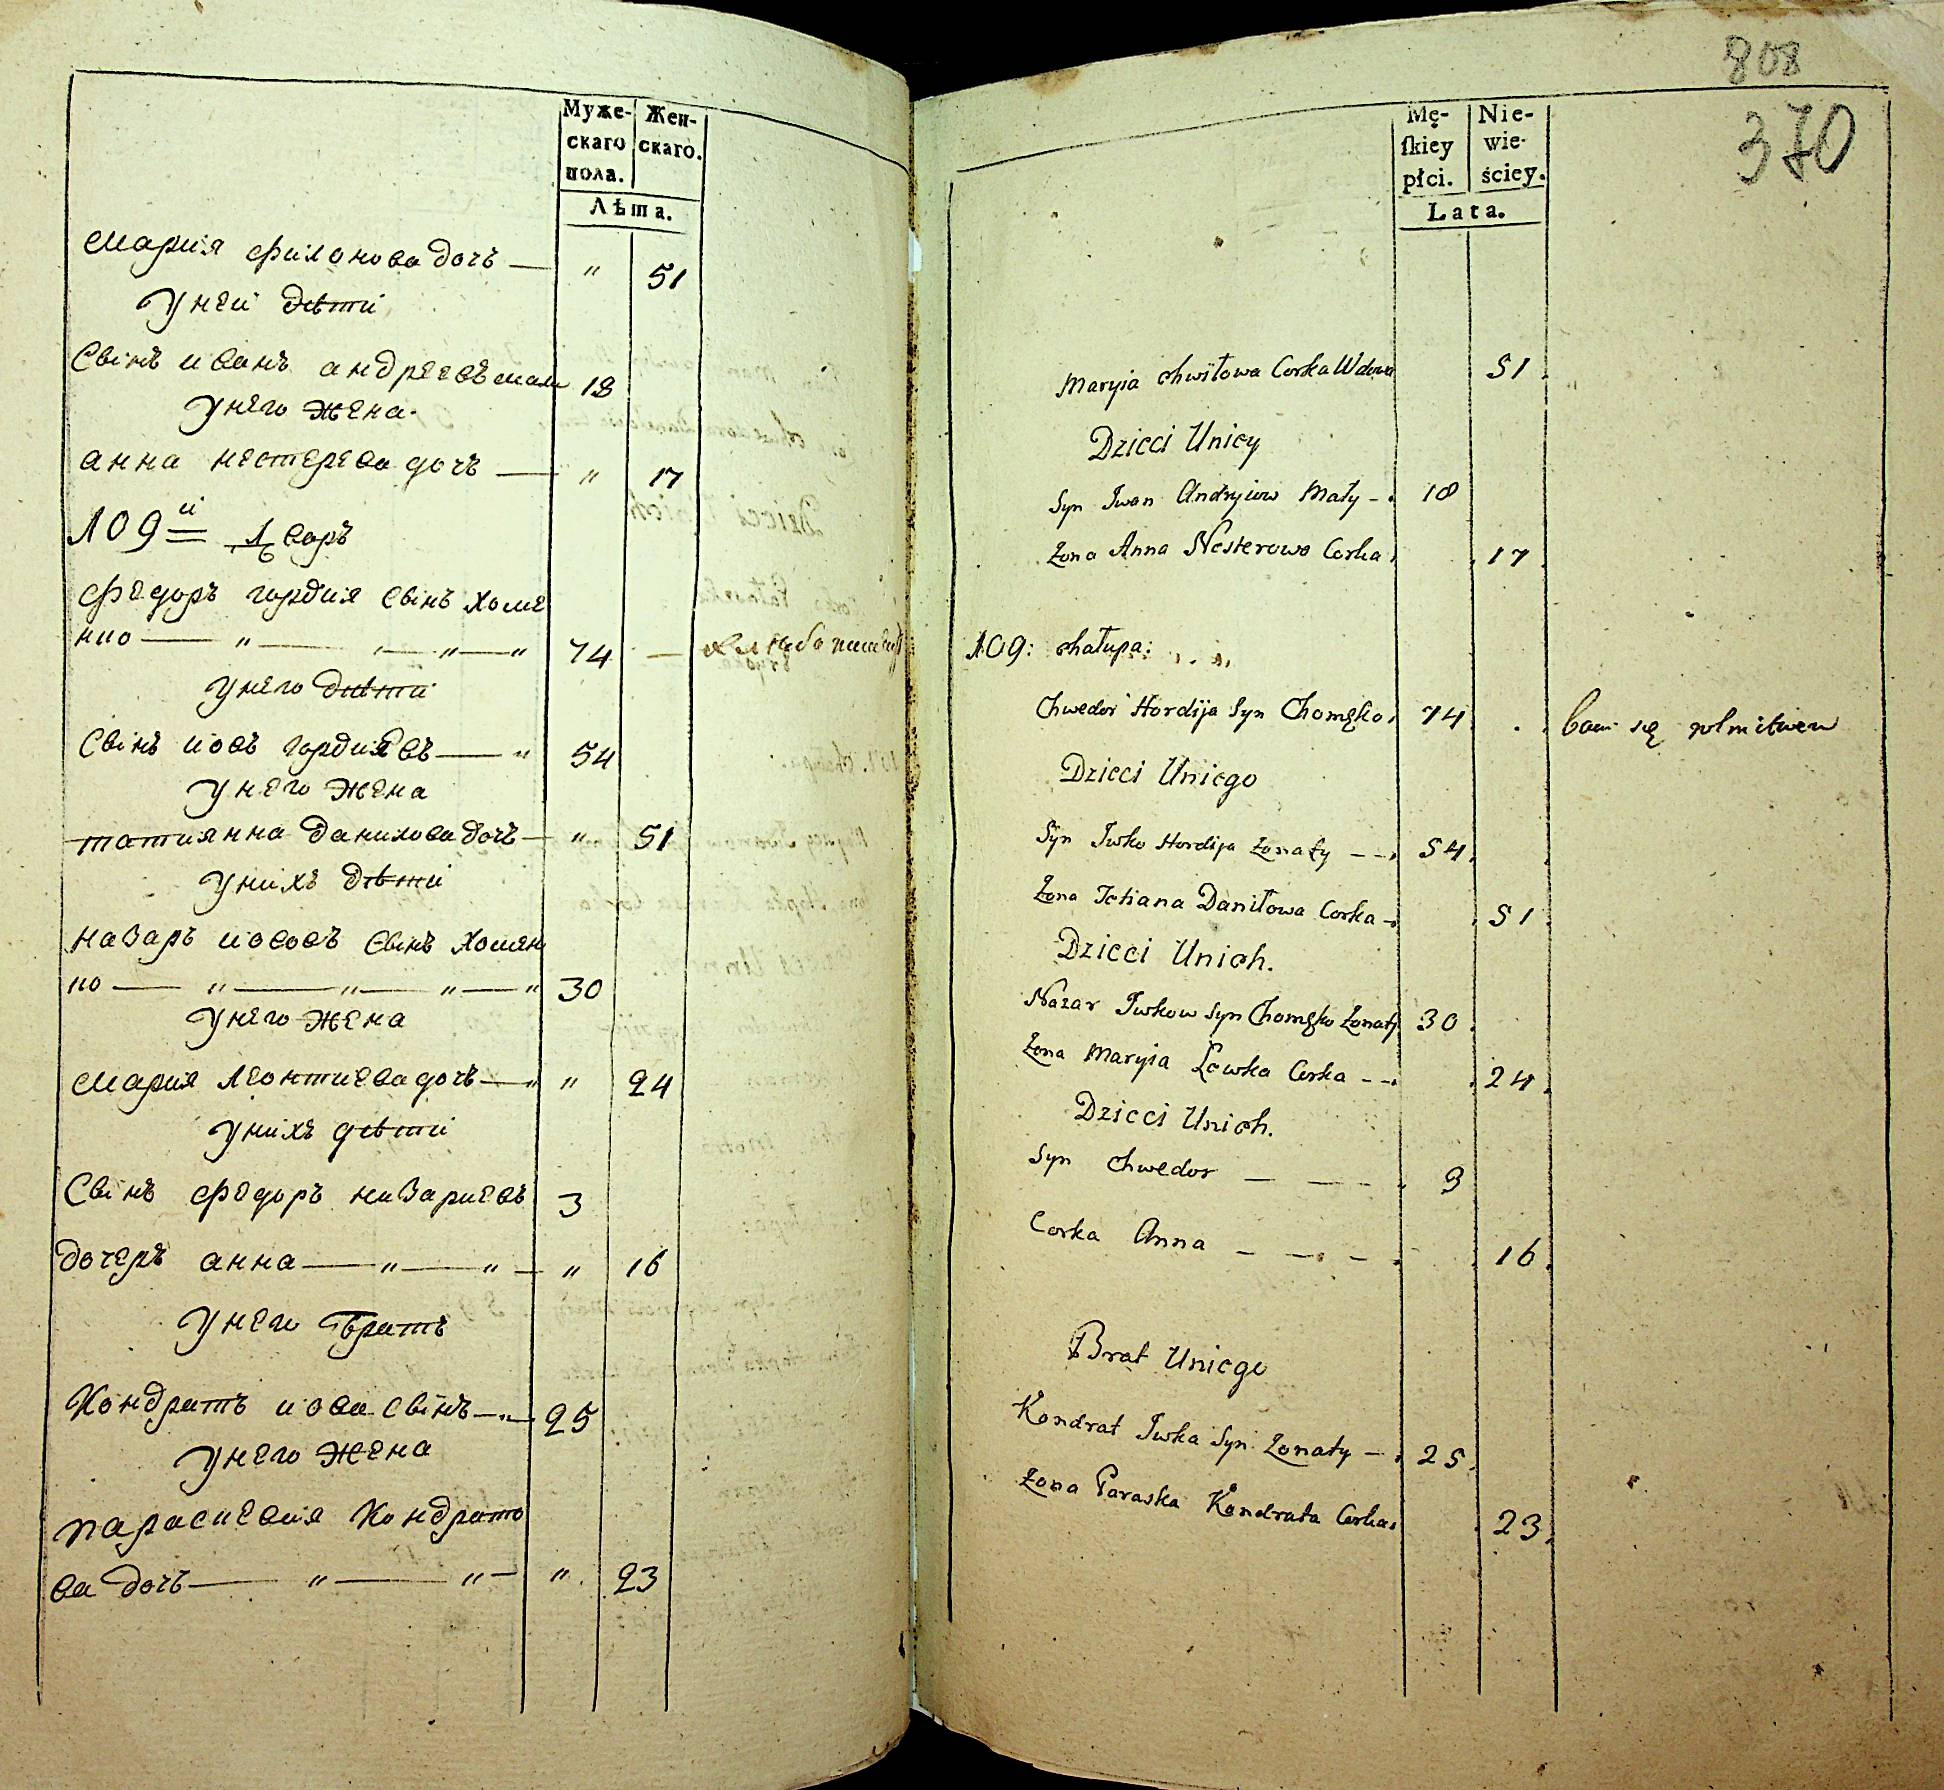 Муже-
скаго
пола.
Жен-
скаго.
Лѣта.
Мария филонова дочъ — " 51
У неи дѣти
Свiнъ иванъ андреевъ мали 18
У него жена
анна нестерева дочъ — " 17
109й Дворъ
федоръ гордия свiнъ хоме
нко — " — " — " 74 —
У него дѣти
Свiнъ иовъ гордиевъ — " 54
У него жена
татиянна данилова дочъ — " 51
У нихъ дѣти
назаръ иововъ свiнъ хомен
ко — " — " — " — " 30
У него жена
Мария леонтиева дочъ — " " 24
У нихъ дѣти
Свiнъ федоръ назариевъ 3
дочеръ анна — " — " — " 16
У него братъ
Кондратъ иова свiнъ — " — 25
У него жена
параскевия кондрато
ва дочъ — " — " — " 23
808
370
Mę-
ſkiey
płci.
Nie-
wie-
ściey.
Lata.
Maryia Chwiłowa Corka Wdowa 51
Dzieci Unicy
Syn Iwan Andryiow Mały - 18
Żona Anna Nesterowa Corka 17
109: chałupa:
Chwedor Hordija Syn Chomęko 74 bawi się
Dzieci Uniego
Syn Iwko Hordija Żonaty - - 54
Żona Tatiana Daniłowa Corka - 51
Dzieci Unich.
Nazar Iwkow Syn Chomęko Żonaty 30
Żona Maryia Lewka Corka - - 24
Dzieci Unich.
Syn Chwedor — — 3
Corka Anna — — — 16
Brat Uniego
Kondrat Iwka Syn Żonaty - 25
Żona Paraska Kondrata Corka 23